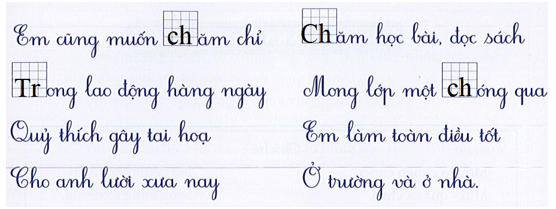 Em cũng muốn chăm chỉ
Trong lao động hàng ngày
Quỷ thích gây tai hoạ
Cho anh lười xưa nay
Chăm học bài, đọc sách
Mong lớp một chóng qua
Em làm toàn điều tốt
Ở trường và ở nhà.